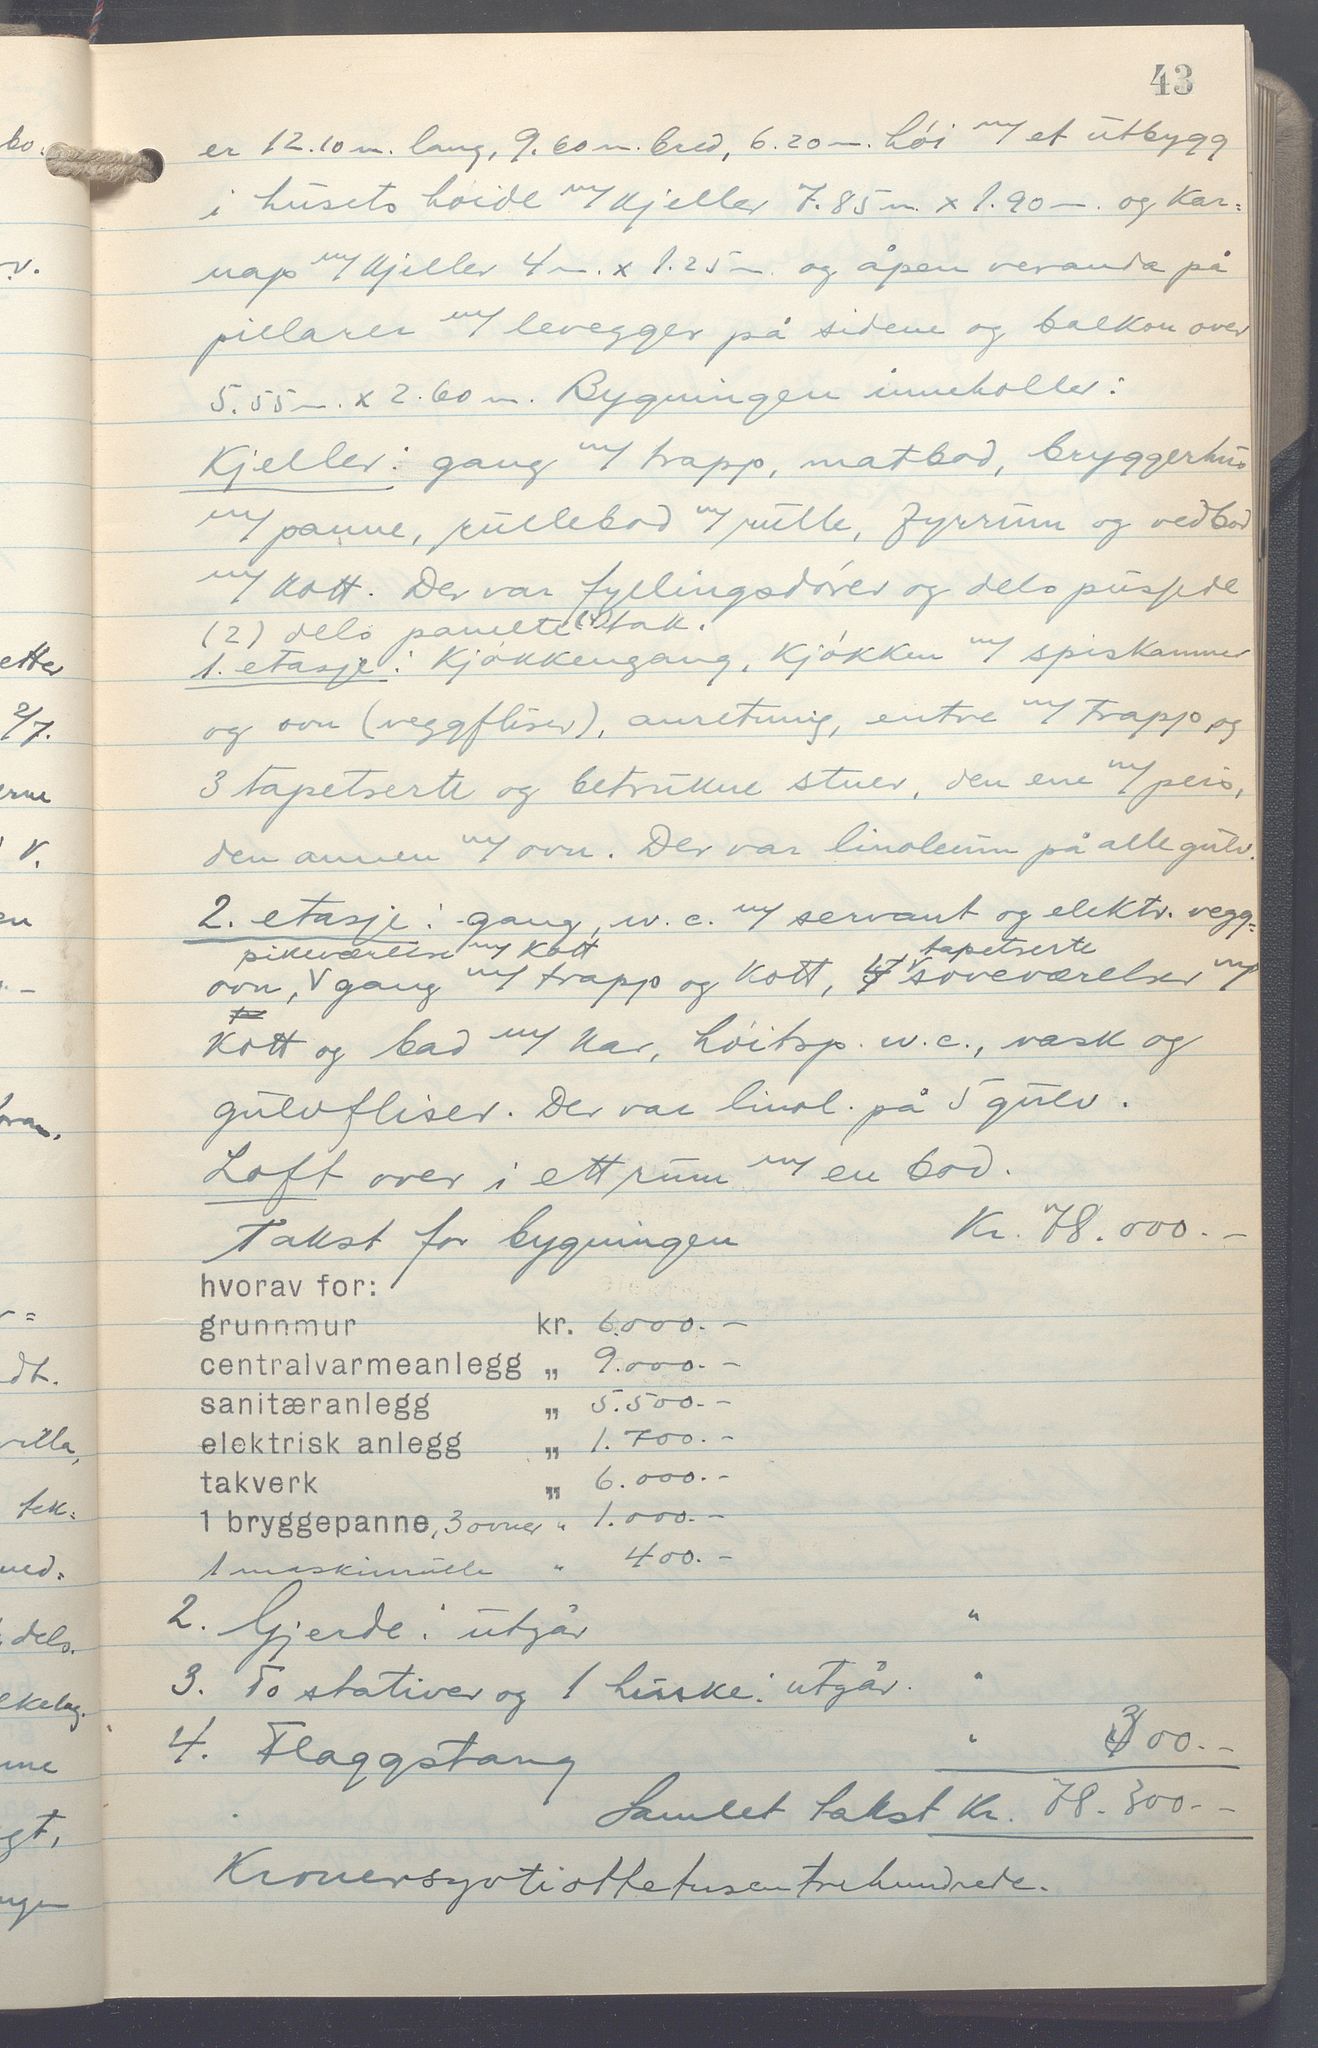 43
er 12.10 m. lang, 9.60 m. bred, 6.20 m. høi m/ et utbygg
i husets høide m/ kjeller 7.85 m. x 1.90 m. og kar=
nap m/ kjeller 4 m. x 1.25 m. og åpen veranda på
pillarer m/ levegger på sidene og balkon over
5.55 m. x 2.60 m. Bygningen inneholler:
Kjeller: gang m/ trapp, matbod, bryggerhus
m/ panne, rullebod m/ rulle, fyrrum og vedbod
m/ kott. Der var fyllingsdører og dels pussede
(2) dels panelte (4) tak.
1. etasje: Kjøkkengang, kjøkken m/ spiskammer
og ovn (veggfliser), anretning, entre m/ trapp og
3 tapetserte og betrukne stuer, den ene m/ peis,
den annen m/ ovn. Der var linoleum på alle gulv.
2. etasje: gang, w.c. m/ servant og elektr. vegg-
pikeværelse m/ kott tapetserte
ovn, V gang m/ trapp og kott, 4 V soveværelser m/
kott og bad m/ kar, høitsp. w.c., vask og
gulvfliser. Der var linol. på 5 gulv.
Loft over i ett rum m/ en bod.
Takst for bygningen Kr. 78.000.-
hvorav for:
grunnmur kr. 6.000.-
centralvarmeanlegg „ 9.000.-
sanitæranlegg „ 5.500.-
elektrisk anlegg „ 1.700.-
takverk „ 6.000.-
1 bryggepanne, 3 ovner " 1.000.-
1 maskinrulle " 400.-
2. Gjerde: utgår "
3. To stativer og 1 huske: utgår. "
4. Flaggstang " 300.-
Samlet takst Kr. 78.300.-
Kronersyvtiottetusentrehundrede.
bo.
v.
etter
2/7.
erne
v.
en
=
dt.
villa,
tek=
ved=
dels.
me
gt,